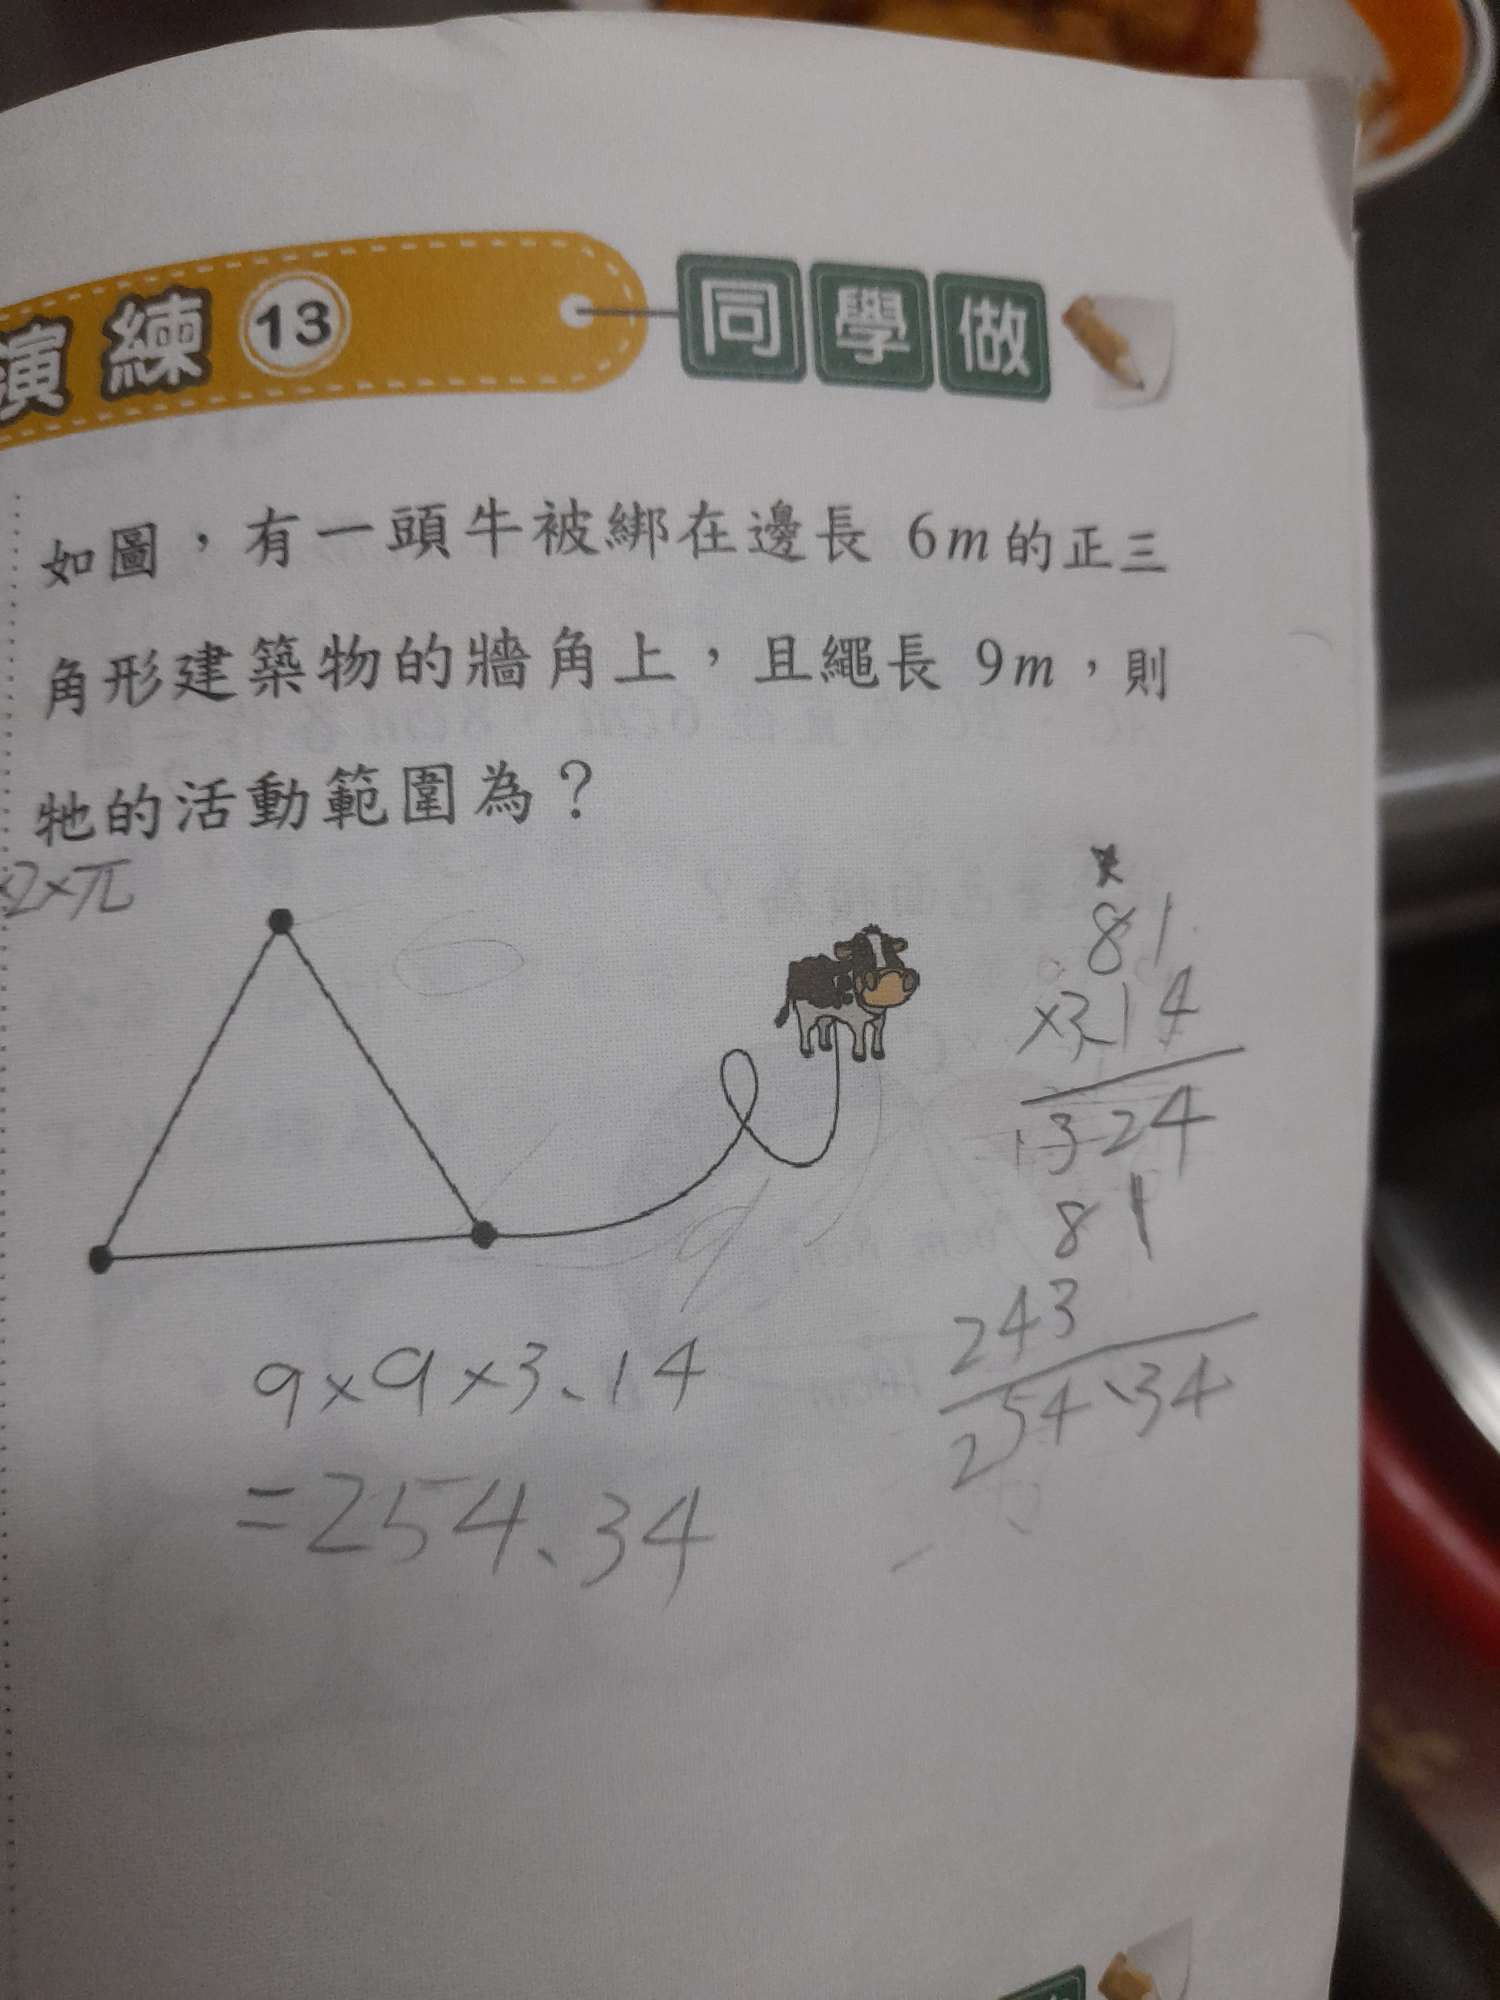 演練 13 同學做
如圖，有一頭牛被綁在邊長 6m 的正三
角形建築物的牆角上，且繩長 9m，則
牠的活動範圍為？
×2×π
81
×3.14
324
81
243
254.34
9
9×9×3.14
=254.34